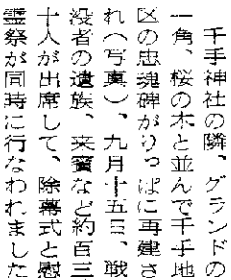 千手神社の隣、グランドの
一角、桜の木と並んで千手地
区の忠魂碑がりっぱに再建さ
れ（写真）、九月十五日、戦
没者の遺族、来賓など約百三
十人が出席して、除幕式と慰
霊祭が同時に行なわれました